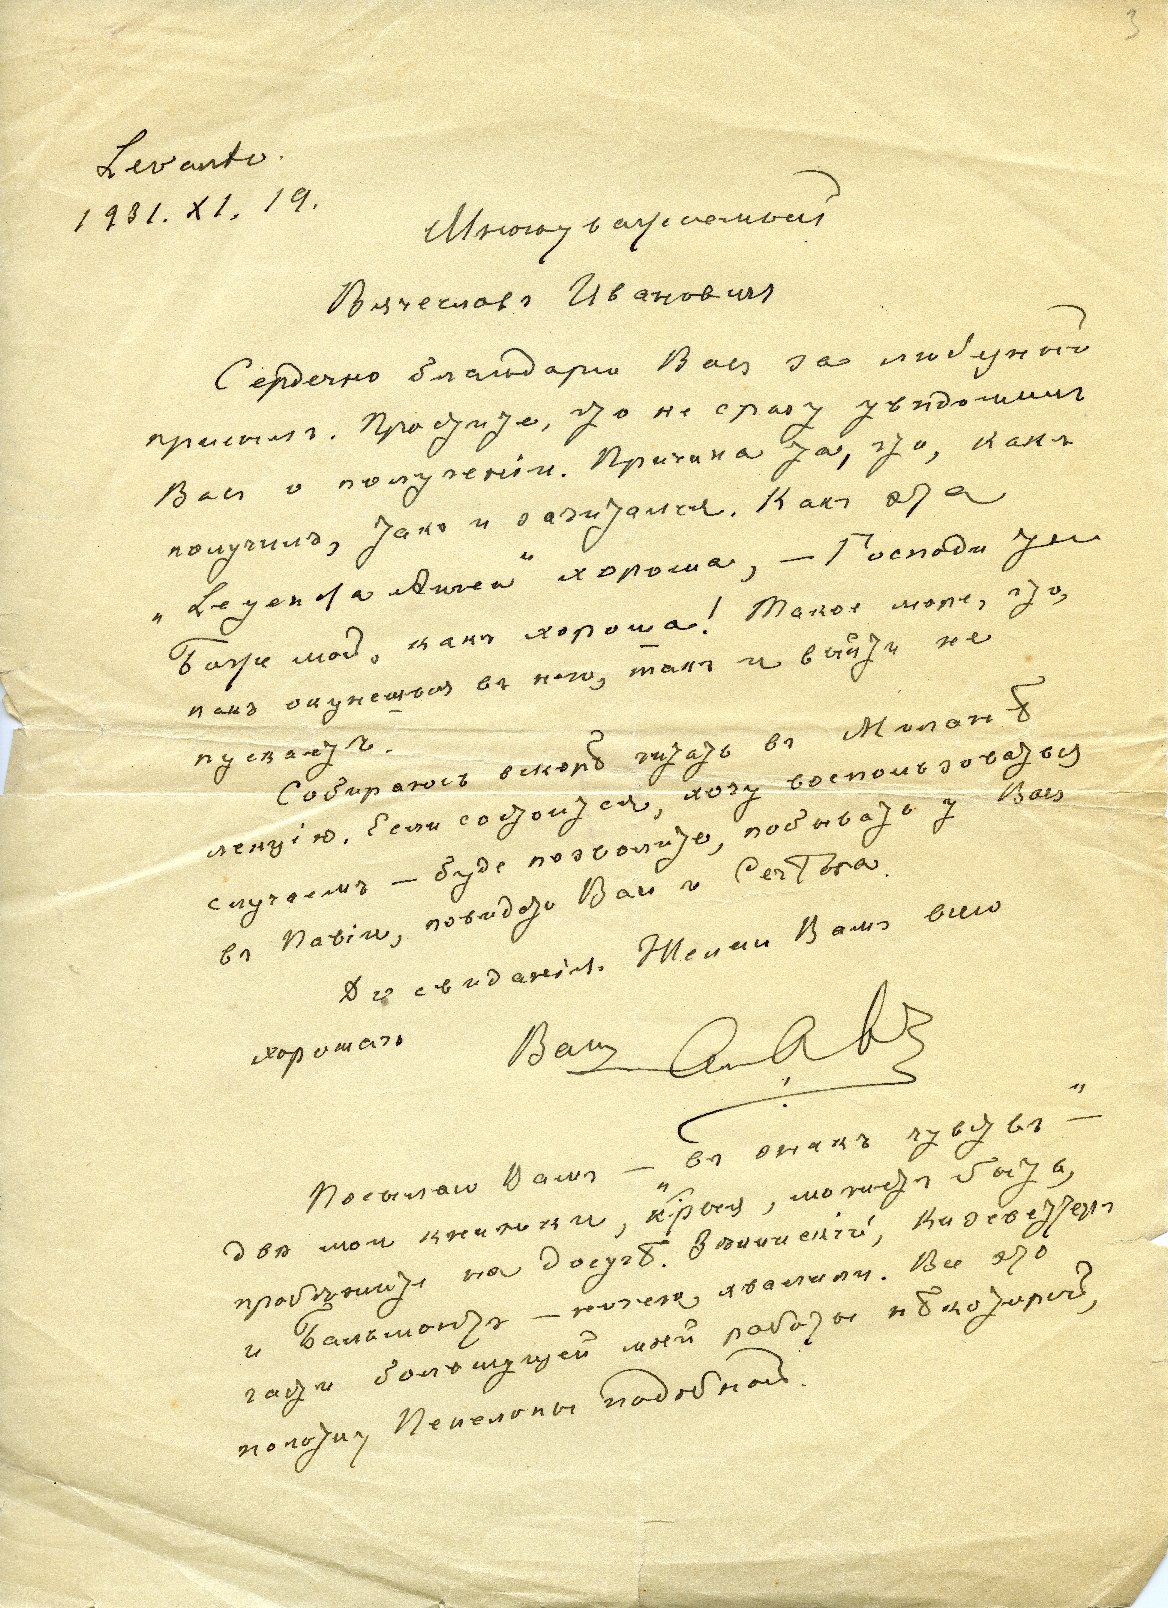 3
Levanto.
1931. XI. 19.
Многоуважаемый
Вячеславъ Ивановичъ
Сердечно благодарю Васъ за любезный
присылъ. Простите, что не сразу увѣдомилъ
Васъ о полученіи. Причина та, что, какъ
получилъ, такъ и зачитался. Какъ эта
„Legenda Aurea“ хороша, — Господи ты
Боже мой, какъ хороша! Такое море, что,
какъ окунешься въ него, такъ и выйти не
пускаетъ.
Собираюсь вскорѣ читать въ Миланѣ
лекцію. Если состоится, хочу воспользоваться
случаемъ — буде позволите, побывать у Васъ
въ Павіи, повидать Васъ и
До свиданія. Желаю Вамъ всего
хорошаго
Вашъ
Посылаю Вамъ — „въ знакъ чувствъ“ —
двѣ мои книжки, может быть,
на досугѣ.
и Бальмонтъ — ничего, хвалили. Все это
части большущей моей работы нѣкоторой,
полотну Пенелопы подобной.